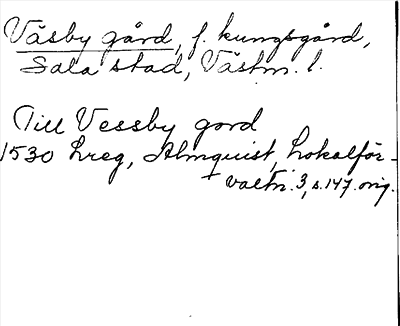 Väsby gård, f. kungsgård,
Sala stad, Västm. l.
Till Vessby gord
1530 hreg, Almquist, Lokalför-
valtn. 3, s. 147. orig.